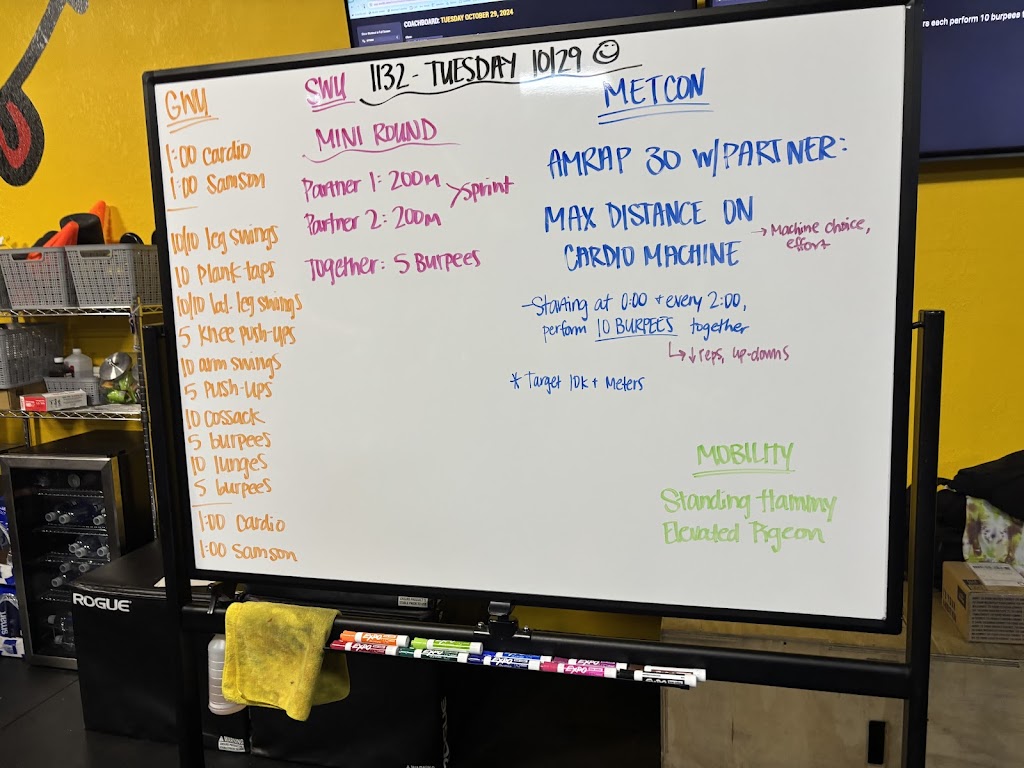 COACHBOARD: TUESDAY OCTOBER 29, 2024
rs each perform 10 burpees t
1132 - TUESDAY 10/29 ☺
GWU
1:00 Cardio
1:00 Samson
10/10 leg swings
10 Plank taps
10/10 lat. leg swings
5 Knee push-ups
10 arm swings
5 Push-ups
10 Cossack
5 burpees
10 lunges
5 burpees
1:00 Cardio
1:00 Samson
SWU
MINI ROUND
Partner 1: 200m
Partner 2: 200m
> Sprint
Together: 5 Burpees
METCON
AMRAP 30 W/PARTNER:
MAX DISTANCE ON
CARDIO MACHINE
→ Machine choice,
effort
- Starting at 0:00 + every 2:00,
perform 10 BURPEES together
↳ ↓ reps, up-downs
* Target 10k+ Meters
MOBILITY
Standing Hammy
Elevated Pigeon
ROGUE
smart
EXPO
EXPO
EXPO
EXPO